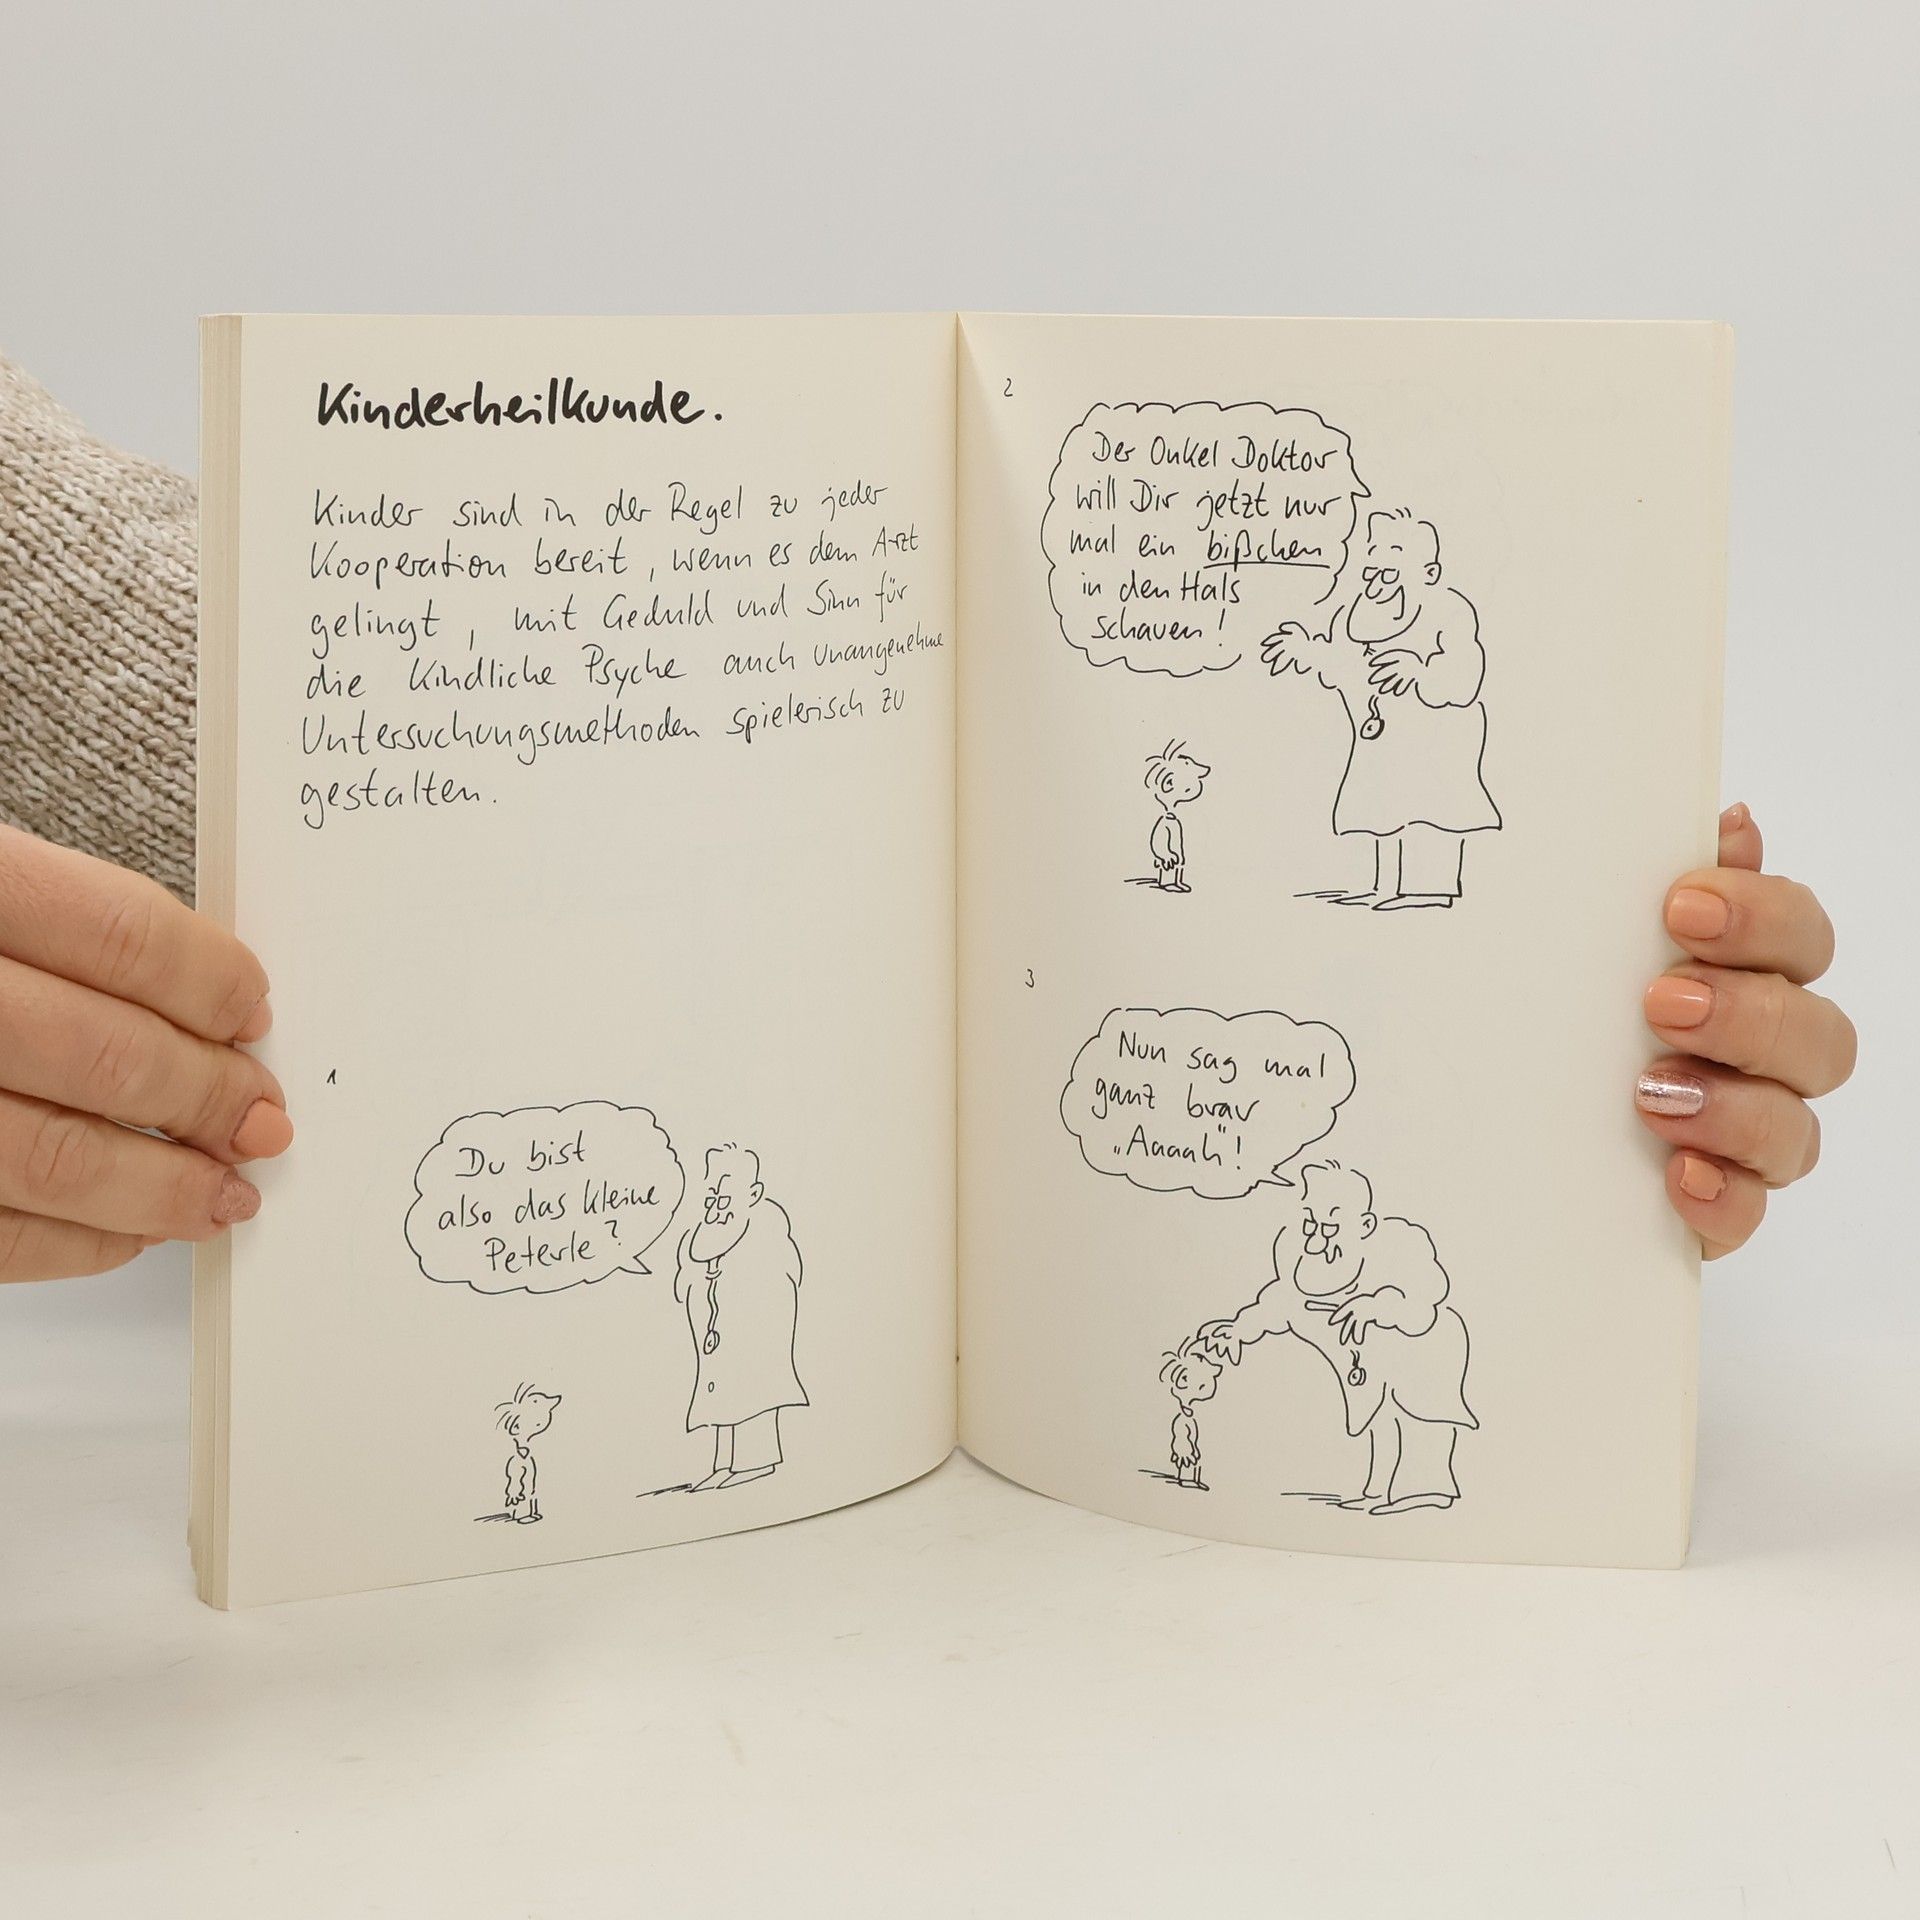 Kinderheilkunde.
Kinder sind in der Regel zu jeder
Kooperation bereit, wenn es dem Arzt
gelingt, mit Geduld und Sinn für
die kindliche Psyche auch unangenehme
Untersuchungsmethoden spielerisch zu
gestalten.
1
Du bist
also das kleine
Peterle?
2
Der Onkel Doktor
will Dir jetzt nur
mal ein bißchen
in den Hals
schauen!
3
Nun sag mal
ganz brav
„Aaaah"!